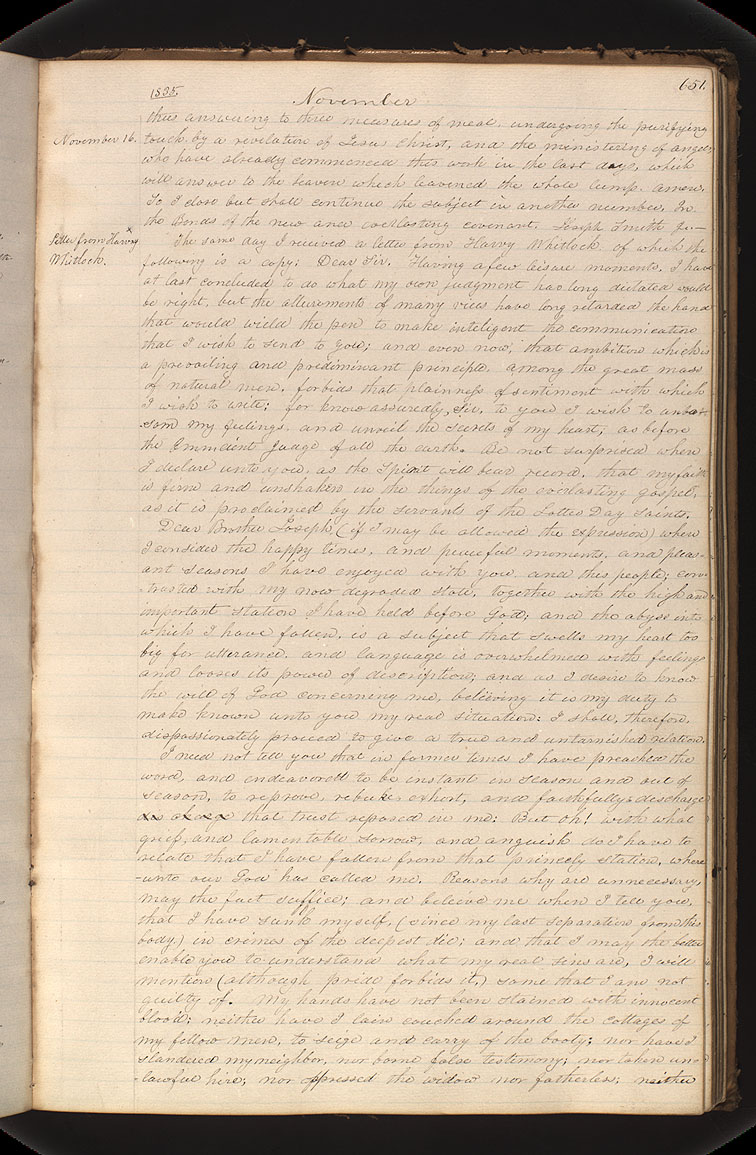 1835.
November
651.
thus answering to three measures of meal, undergoing the purifying
November 16.
touch by a revelation of Jesus Christ, and the ministering of angels
who have already commenced this work in the last days, which
will answer to the leaven which leavened the whole lump. Amen.
So I close but shall continue the subject in another number. In
the Bonds of the new and everlasting covenant. Joseph Smith Jr.—
Letter from Harvy
Whitlock.
The same day I received a letter from Harvy Whitlock of which the
following is a copy: Dear Sir. Having a few leisure moments, I have
at last concluded to do what my own judgment has long dictated would
be right, but the allurements of many vices have long retarded the hand
that would wield the pen to make inteligent the communication
that I wish to send to you; and even now, that ambition which is
a prevailing and prediminant principle, among the great mass
of natural men, forbids that plainness of sentiment with which
I wish to write; for know assuredly, Sir, to you I wish to unbo-
som my feelings, and unveil the secrets of my heart, as before
the Omnicient Judge of all the earth. Be not surprised when
I declare unto you, as the Spirit will bear record, that my faith
is firm and unshaken in the things of the everlasting gospel,
as it is proclaimed by the servants of the Latter Day Saints.
Dear Brother Joseph, (if I may be allowed the expression) when
I consider the happy times, and peaceful moments, and pleas-
ant seasons I have enjoyed with you and this people; con-
-trasted with my now degraded state, together with the high and
important station I have held before God; and the abyss into
which I have fallen, is a subject that swells my heart too
big for utterance, and language is overwhelmed with feeling
and looses its power of description; and as I desire to know
the will of God concerning me, believing it is my duty to
make known unto you my real situation: I shall, therefore,
dispassionately proceed to give a true and untarnished relation.
I need not tell you that in former times I have preached the
word, and endeavored to be instant in season and out of
season, to reprove, rebuke, exhort, and faithfully discharge
that trust reposed in me: But oh! with what
grief, and lamentable sorrow, and anguish do I have to
relate that I have fallen from that princely station, where
-unto our God has called me. Reasons why are unnecessary,
may the fact suffice; and believe me when I tell you,
that I have sunk myself, (since my last separation from this
body) in crimes of the deepest die; and that I may the better
enable you to understand what my real sins are, I will
mention (although pride forbids it,) some that I am not
guilty of. My hands have not been stained with innocent
blood; neither have I lain couched around the cottages of
my fellow men, to seize and carry of the booty; nor have I
slandered my neighbor, nor borne false testimony; nor taken un-
-lawful hire; nor oppressed the widow nor fatherless; neither